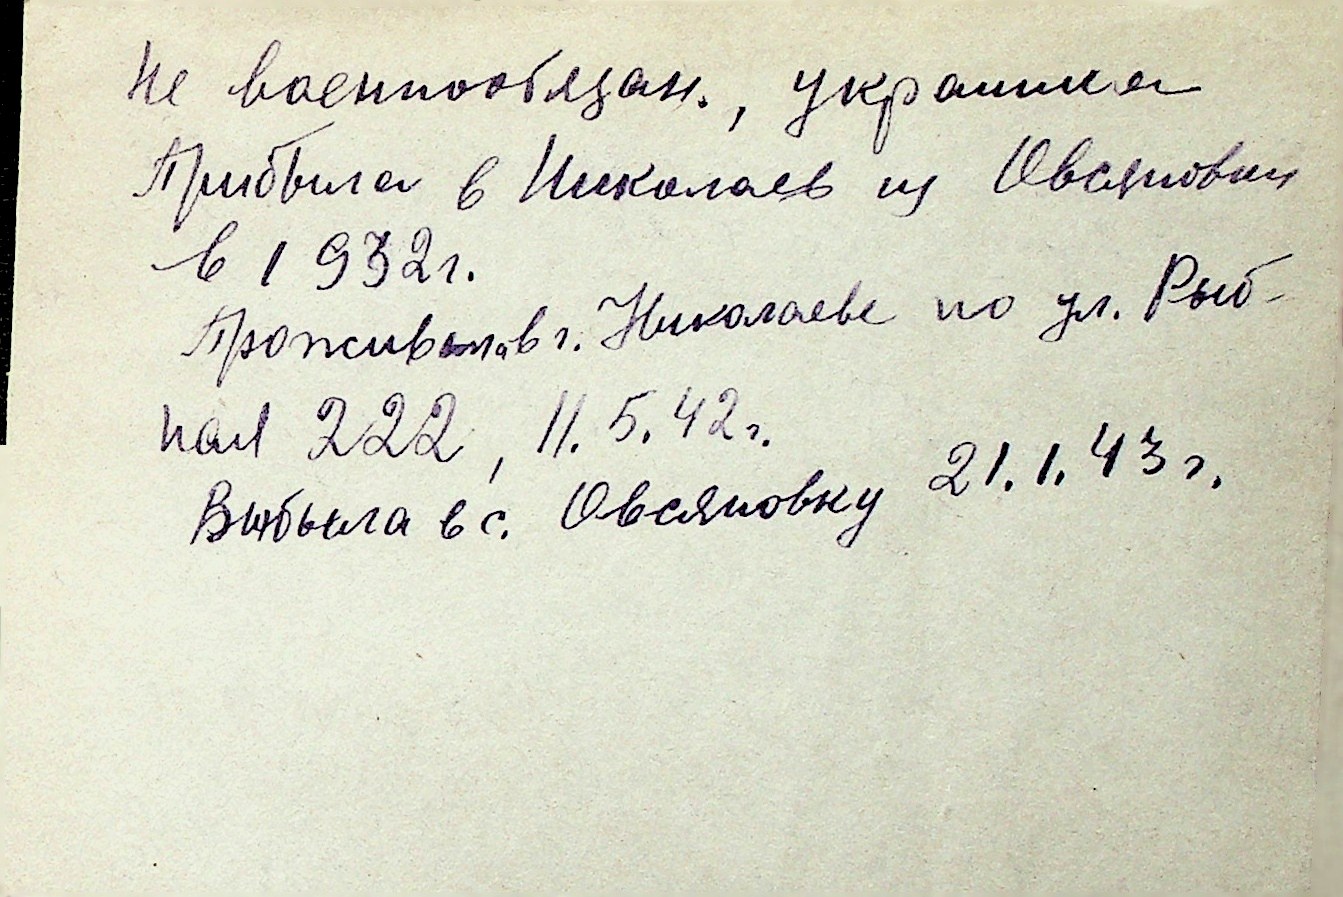 Не военнообязан., украинка
Прибыла в Николаев из Овсяновки
в 1932г.
Проживала в г. Николаеве по ул. Рыб-
ная 222, 11.5.42г.
Выбыла в с. Овсяновку 21.1.43г.